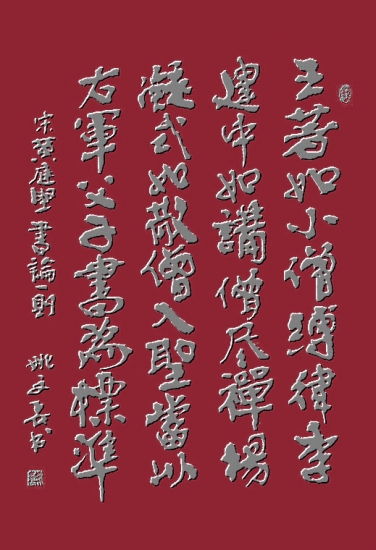 王著如小僧縛律李
建中如講僧参禪楊
凝式如散僧入聖當以
右軍父子書為標準
宋黄庭堅書論一則
姚文長书